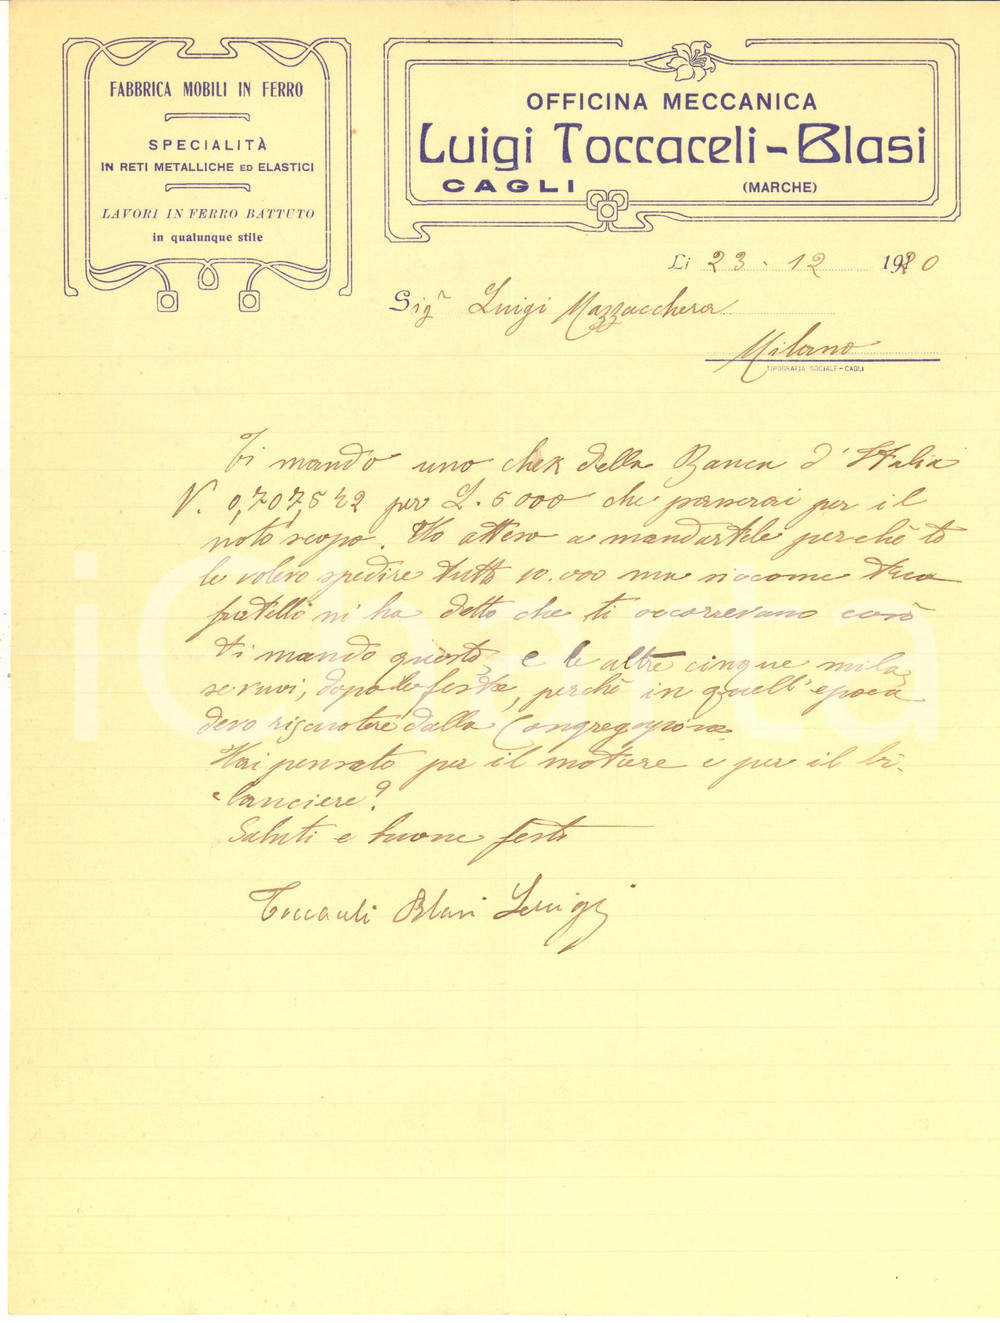 FABBRICA MOBILI IN FERRO
SPECIALITÀ
IN RETI METALLICHE ED ELASTICI
LAVORI IN FERRO BATTUTO
in qualunque stile
OFFICINA MECCANICA
Luigi Toccaceli-Blasi
CAGLI (MARCHE)
Li 23 - 12 1920
Sigr Luigi Mazzacchera
Milano
TIPOGRAFIA SOCIALE - CAGLI
Ti mando uno chek della Banca d'Italia
N. 0,707,542 per L. 5000 che passerai per il
noto scopo. Ho atteso a mandartele perchè te
le volevo spedire tutte 10.000 ma siccome tuo
fratello mi ha detto che ti occorrevano così
ti mando queste, e le altre cinque mila
dopo le feste, perchè in quell'epoca
devo riscuotere dalla Congregazione
Hai pensato per il motore e per il bi-
lanciere?
Saluti e buone feste
Toccaceli Blasi Luigi
iCharta